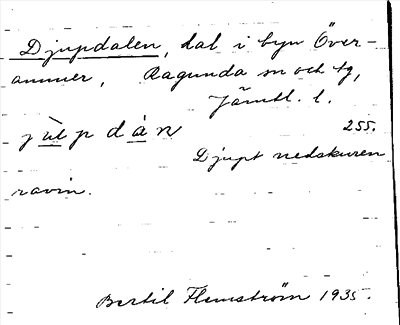 Djupdalen, dal i byn Över-
ammer, Ragunda sn och tg,
Jämtl. l.
jùpdàn 255.
Djupt nedskuren
ravin.
Bertil Flemström 1935.